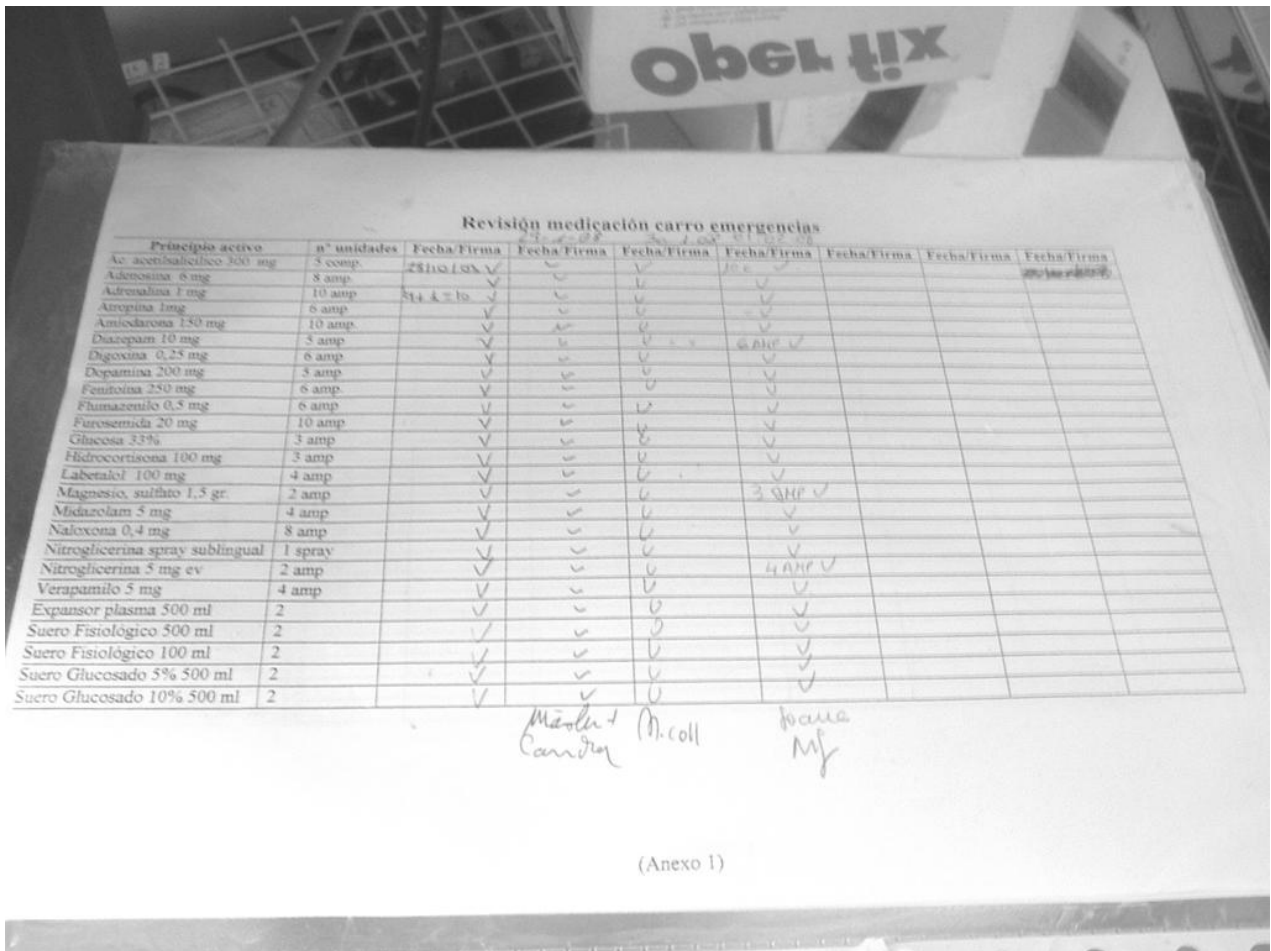 Ober fix
Revisión medicación carro emergencias
Principio activo nº unidades Fecha/Firma Fecha/Firma Fecha/Firma Fecha/Firma Fecha/Firma Fecha/Firma Fecha/Firma
Ac. acetilsalicílico 300 mg 5 comp.
Adenosina 6 mg 8 amp.
Adrenalina 1 mg 10 amp
Atropina 1mg 6 amp
Amiodarona 150 mg 10 amp.
Diazepam 10 mg 5 amp 6 AMP
Digoxina 0,25 mg 6 amp
Dopamina 200 mg 5 amp
Fenitoína 250 mg 6 amp.
Flumazenilo 0,5 mg 6 amp
Furosemida 20 mg 10 amp
Glucosa 33% 3 amp
Hidrocortisona 100 mg 3 amp
Labetalol 100 mg 4 amp
Magnesio, sulfato 1,5 gr. 2 amp 3 AMP
Midazolam 5 mg 4 amp
Naloxona 0,4 mg 8 amp
Nitroglicerina spray sublingual 1 spray
Nitroglicerina 5 mg ev 2 amp 4 AMP
Verapamilo 5 mg 4 amp
Expansor plasma 500 ml 2
Suero Fisiológico 500 ml 2
Suero Fisiológico 100 ml 2
Suero Glucosado 5% 500 ml 2
Suero Glucosado 10% 500 ml 2
M.coll
(Anexo 1)